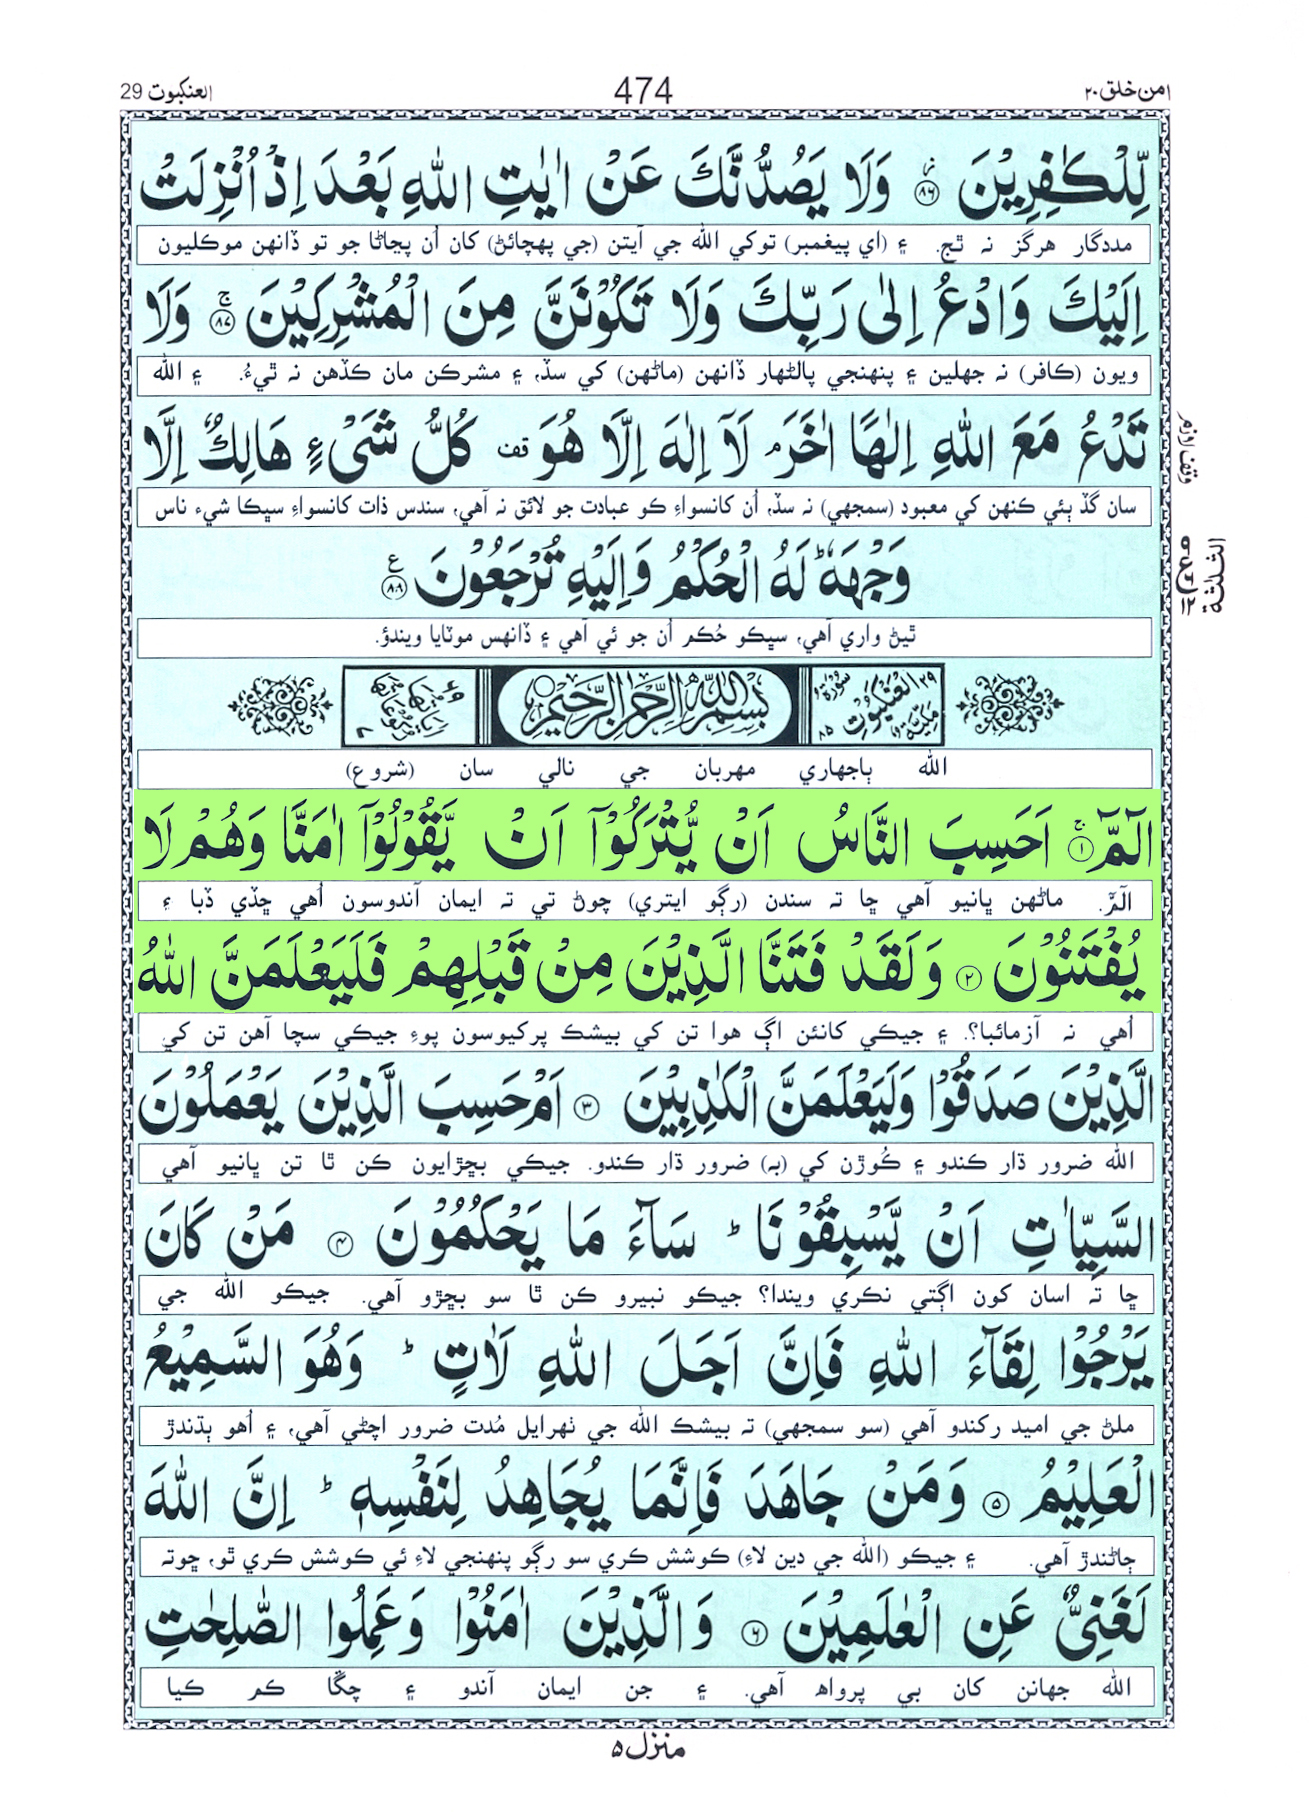 امن خلق ۲۰
474
العنكبوت 29
لِّلْكٰفِرِيْنَ ﴿۸۶﴾ وَلَا يَصُدُّنَّكَ عَنْ اٰيٰتِ اللّٰهِ بَعْدَ اِذْ اُنْزِلَتْ
مددگار هرگز نہ ٿج. ۽ (اي پيغمبر) توکي الله جي آيتن (جي پهچائڻ) کان اُن پڄاڻا جو تو ڏانهن موڪليون
اِلَيْكَ وَادْعُ اِلٰى رَبِّكَ وَلَا تَكُوْنَنَّ مِنَ الْمُشْرِكِيْنَ ﴿۸۷﴾ وَلَا
ويون (ڪافر) نہ جهلين ۽ پنهنجي پالڻهار ڏانهن (ماڻهن) کي سڏ، ۽ مشرڪن مان ڪڏهن نہ ٿيءُ. ۽ الله
تَدْعُ مَعَ اللّٰهِ اِلٰهًا اٰخَرَ ۘ لَآ اِلٰهَ اِلَّا هُوَ قف كُلُّ شَىْءٍ هَالِكٌ اِلَّا
سان گڏ ٻئي ڪنهن کي معبود (سمجهي) نہ سڏ، اُن کانسواءِ ڪو عبادت جو لائق نہ آهي، سندس ذات کانسواءِ سڀڪا شيء ناس
وَجْهَهٗ ؕ لَهُ الْحُكْمُ وَاِلَيْهِ تُرْجَعُوْنَ ﴿۸۸﴾ ع
ٿيڻ واري آهي، سڀڪو حُڪم اُن جو ئي آهي ۽ ڏانهس موٽايا ويندؤ.
وقف لازم
الثلثة
۲۹ سُوْرَةُ الْعَنْكَبُوْتِ مَكِّيَّةٌ ۸۵
بِسْمِ اللّٰهِ الرَّحْمٰنِ الرَّحِيْمِ
اٰيَاتُهَا ۶۹ رُكُوْعَاتُهَا ۷
الله ٻاجهاري مهربان جي نالي سان (شروع)
الٓمّٓ ﴿۱﴾ ۚ اَحَسِبَ النَّاسُ اَنْ يُّتْرَكُوْٓا اَنْ يَّقُوْلُوْٓا اٰمَنَّا وَهُمْ لَا
الٓمّٓ. ماڻهن ڀانيو آهي ڇا تہ سندن (رڳو ايتري) چوڻ تي تہ ايمان آندوسون اُهي ڇڏي ڏبا ۽
يُفْتَنُوْنَ ﴿۲﴾ وَلَقَدْ فَتَنَّا الَّذِيْنَ مِنْ قَبْلِهِمْ فَلَيَعْلَمَنَّ اللّٰهُ
اُهي نہ آزمائبا؟. ۽ جيڪي کانئن اڳ هوا تن کي بيشڪ پرکيوسون پوءِ جيڪي سچا آهن تن کي
الَّذِيْنَ صَدَقُوْا وَلَيَعْلَمَنَّ الْكٰذِبِيْنَ ﴿۳﴾ اَمْ حَسِبَ الَّذِيْنَ يَعْمَلُوْنَ
الله ضرور ڌار ڪندو ۽ ڪُوڙن کي (بہ) ضرور ڌار ڪندو. جيڪي بڇڙايون ڪن ٿا تن ڀانيو آهي
السَّيِّاٰتِ اَنْ يَّسْبِقُوْنَا ؕ سَآءَ مَا يَحْكُمُوْنَ ﴿۴﴾ مَنْ كَانَ
ڇا تہ اسان کون اڳتي نڪري ويندا؟ جيڪو نبيرو ڪن ٿا سو بڇڙو آهي. جيڪو الله جي
يَرْجُوْا لِقَآءَ اللّٰهِ فَاِنَّ اَجَلَ اللّٰهِ لَاٰتٍ ؕ وَهُوَ السَّمِيْعُ
ملڻ جي اميد رکندو آهي (سو سمجهي) تہ بيشڪ الله جي ٺهرايل مُدت ضرور اچڻي آهي، ۽ اُهو ٻڌندڙ
الْعَلِيْمُ ﴿۵﴾ وَمَنْ جَاهَدَ فَاِنَّمَا يُجَاهِدُ لِنَفْسِهٖ ؕ اِنَّ اللّٰهَ
ڄاڻندڙ آهي. ۽ جيڪو (الله جي دين لاءِ) ڪوشش ڪري سو رڳو پنهنجي لاءِ ئي ڪوشش ڪري ٿو، ڇوتہ
لَغَنِىٌّ عَنِ الْعٰلَمِيْنَ ﴿۶﴾ وَالَّذِيْنَ اٰمَنُوْا وَعَمِلُوا الصّٰلِحٰتِ
الله جهانن کان بي پرواھ آهي. ۽ جن ايمان آندو ۽ چڱا ڪم ڪيا
منزل ۵